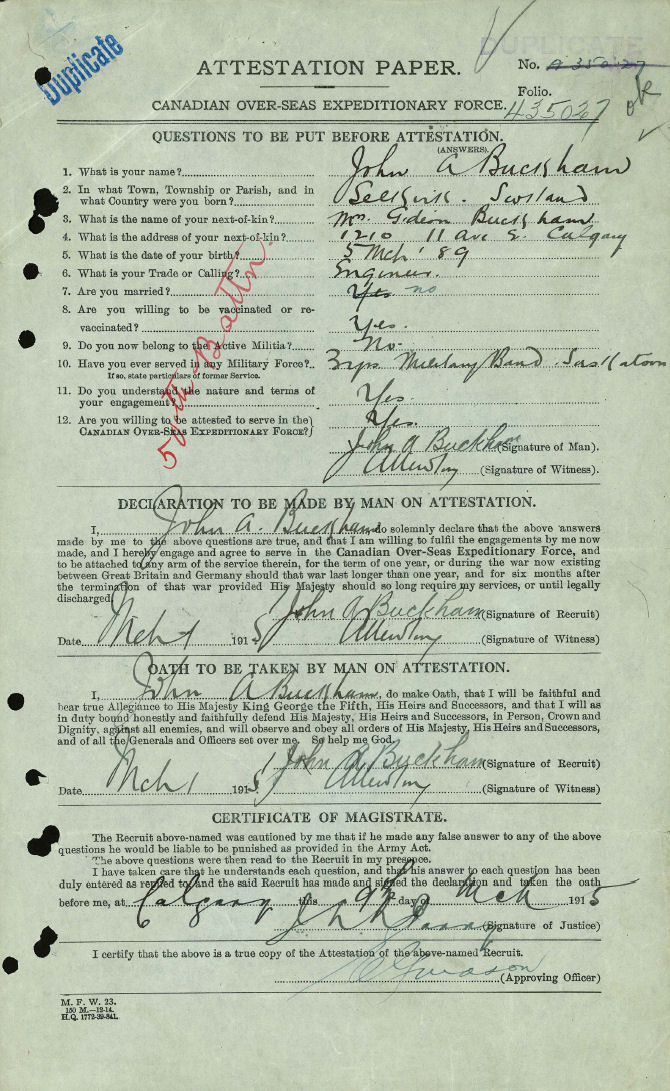 Duplicate
DUPLICATE
ATTESTATION PAPER.
No.
Folio.
CANADIAN OVER-SEAS EXPEDITIONARY FORCE.
435027
QUESTIONS TO BE PUT BEFORE ATTESTATION.
(ANSWERS).
1. What is your name? John A Buckham
2. In what Town, Township or Parish, and in
what Country were you born? Selkirk. Scotland
3. What is the name of your next-of-kin? Mrs. Gideon Buckham
4. What is the address of your next-of-kin? 1210 11 ave E. Calgary
5. What is the date of your birth? 5 Mch '89
6. What is your Trade or Calling? Engineer.
7. Are you married? Yes no
8. Are you willing to be vaccinated or re-
vaccinated? Yes.
9. Do you now belong to the Active Militia? No.
10. Have you ever served in any Military Force? 3 yrs Military Band Saskatoon
If so, state particulars of former Service.
11. Do you understand the nature and terms of
your engagement? Yes.
12. Are you willing to be attested to serve in the
CANADIAN OVER-SEAS EXPEDITIONARY FORCE? Yes.
50th Battn.
John A Buckham (Signature of Man).
(Signature of Witness).
DECLARATION TO BE MADE BY MAN ON ATTESTATION.
I, John A. Buckham do solemnly declare that the above answers
made by me to the above questions are true, and that I am willing to fulfil the engagements by me now
made, and I hereby engage and agree to serve in the Canadian Over-Seas Expeditionary Force, and
to be attached to any arm of the service therein, for the term of one year, or during the war now existing
between Great Britain and Germany should that war last longer than one year, and for six months after
the termination of that war provided His Majesty should so long require my services, or until legally
discharged.
John A Buckham (Signature of Recruit)
Date Mch 1 1915 (Signature of Witness)
OATH TO BE TAKEN BY MAN ON ATTESTATION.
I, John A Buckham, do make Oath, that I will be faithful and
bear true Allegiance to His Majesty King George the Fifth, His Heirs and Successors, and that I will as
in duty bound honestly and faithfully defend His Majesty, His Heirs and Successors, in Person, Crown and
Dignity, against all enemies, and will observe and obey all orders of His Majesty, His Heirs and Successors,
and of all the Generals and Officers set over me. So help me God.
John A Buckham (Signature of Recruit)
Date Mch 1 1915 (Signature of Witness)
CERTIFICATE OF MAGISTRATE.
The Recruit above-named was cautioned by me that if he made any false answer to any of the above
questions he would be liable to be punished as provided in the Army Act.
The above questions were then read to the Recruit in my presence.
I have taken care that he understands each question, and that his answer to each question has been
duly entered as replied to, and the said Recruit has made and signed the declaration and taken the oath
before me, at Calgary this 9th day of Mch 1915
(Signature of Justice)
I certify that the above is a true copy of the Attestation of the above-named Recruit.
(Approving Officer)
M. F. W. 23.
150 M.—12-14.
H.Q. 1772-39-841.